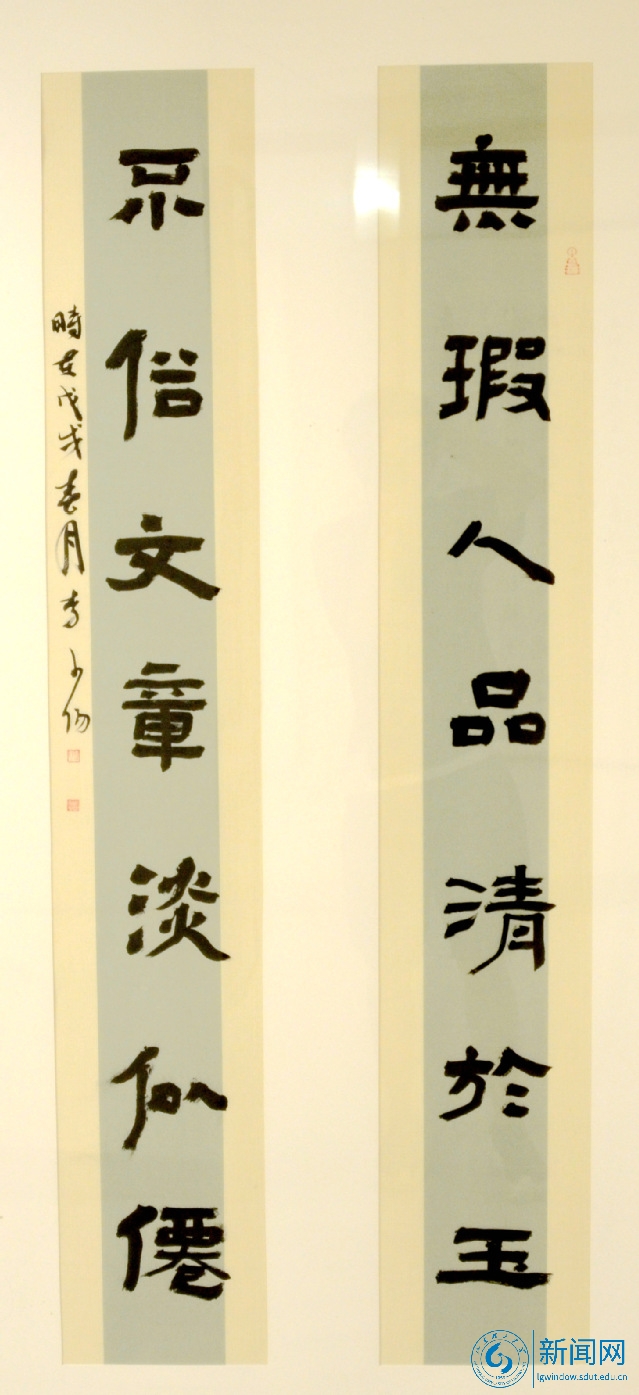 無瑕人品清於玉
不俗文章淡似僊
時在戊戌春月李少陽
新闻网
lgwindow.sdut.edu.cn